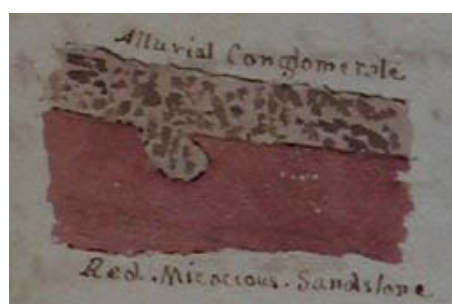 Alluvial Conglomerale
Red. Micacious. Sandstone